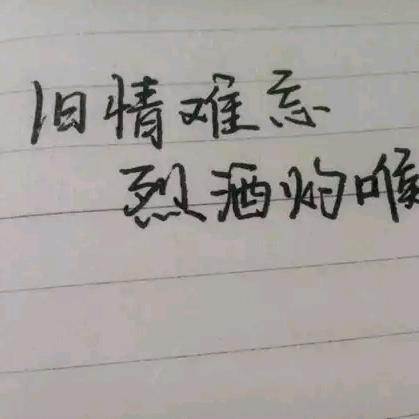 旧情难忘
烈酒灼喉